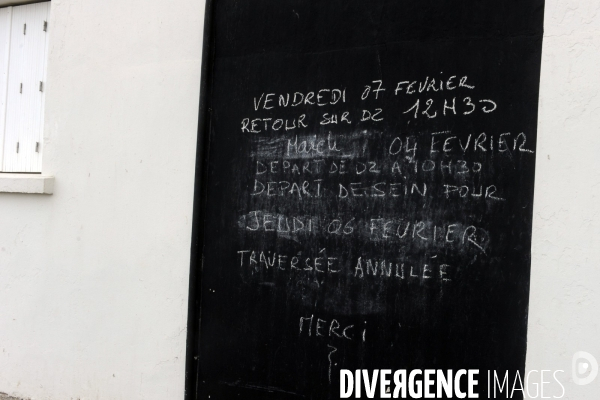 VENDREDI 07 FEVRIER
RETOUR SUR DZ 12H30
Mardi 04 FEVRIER
DEPART DE DZ A 10H30
DEPART DE SEIN POUR
JEUDI 06 FEVRIER
TRAVERSÉE ANNULÉE
MERCI
DIVERGENCE IMAGES
D